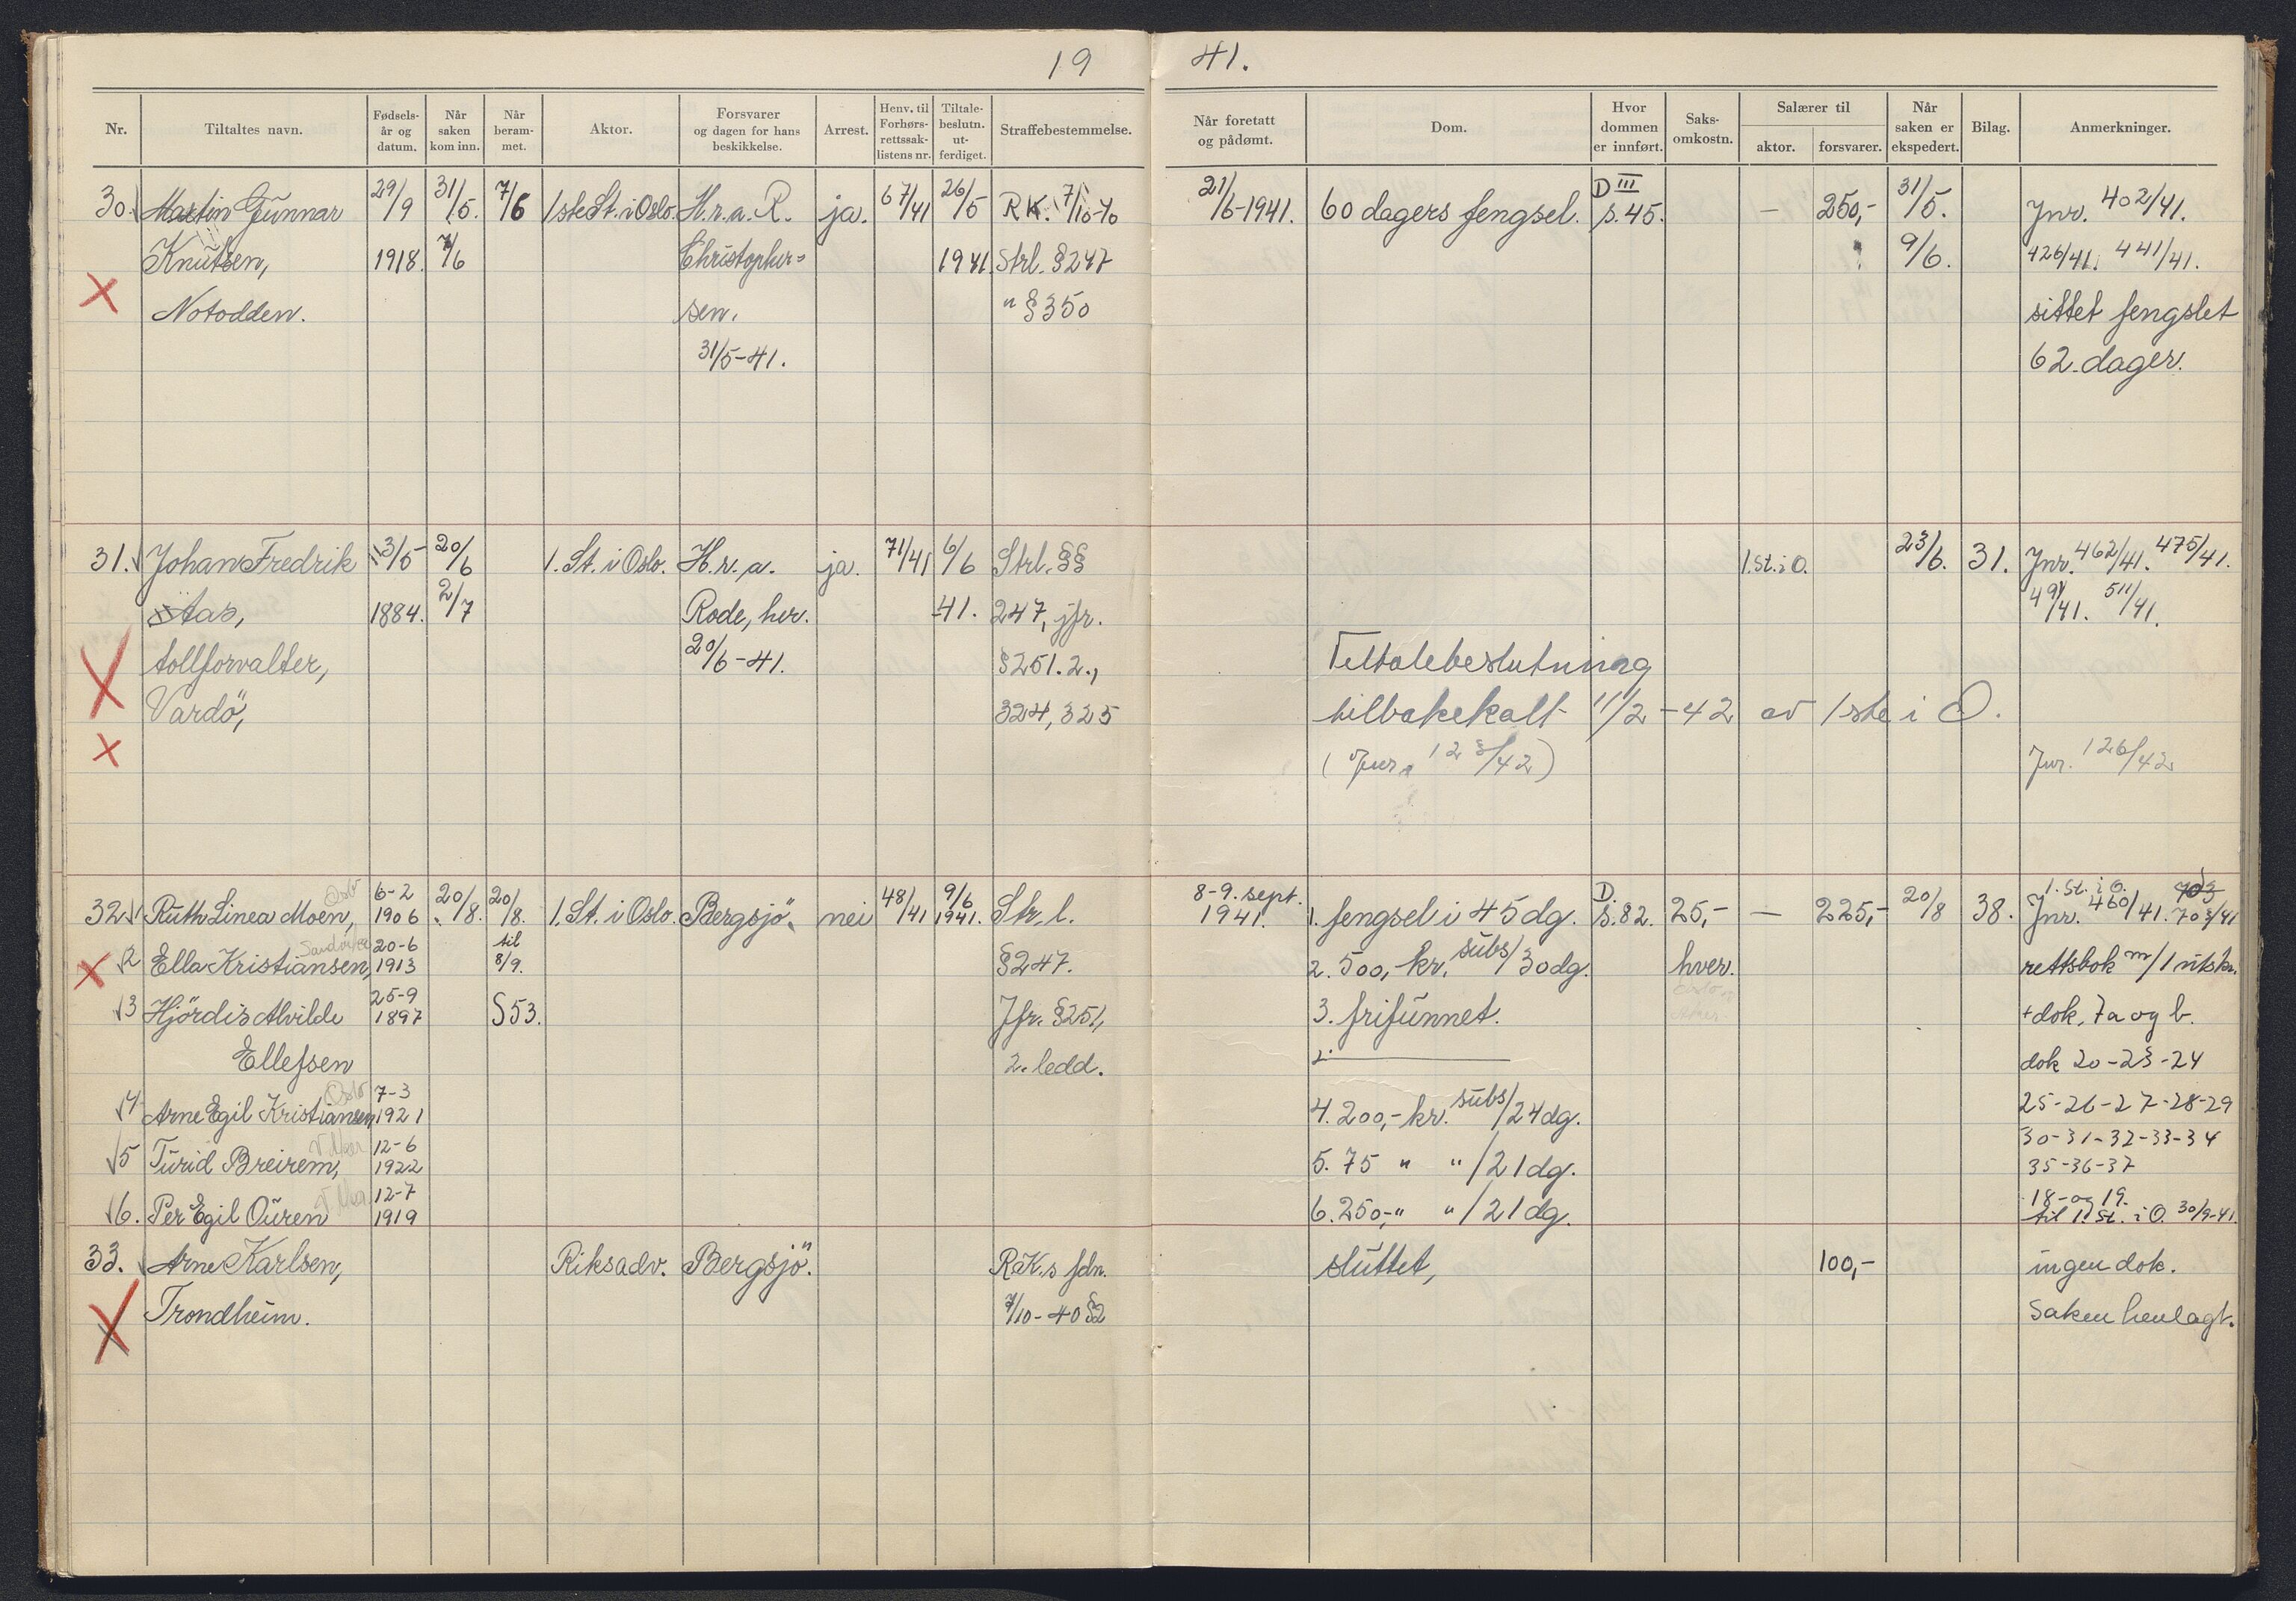 19 41.
Nr. Tiltaltes navn. Fødsels-år og datum. Når saken kom inn. Når beram-met. Aktor. Forsvarer og dagen for hans beskikkelse. Arrest. Henv. til Forhørs-rettssak-listens nr. Tiltale-beslutn. ut-ferdiget. Straffebestemmelse. Når foretatt og pådømt. Dom. Hvor dommen er innført. Saks-omkostn. Salærer til aktor. forsvarer. Når saken er ekspedert. Bilag. Anmerkninger.
30. Martin Gunnar 29/9 31/5. 7/6 1ste St. i Oslo. H.r.a. R. ja. 67/41 26/5 RK. 7/10-40 21/6-1941. 60 dagers fengsel. D III s. 45. — 250,- 31/5. Jnr. 402/41.
Knutsen, 1918. 7/6 Christopher= 1941. Strl. § 247 9/6. 426/41. 441/41.
Notodden. sen. " § 350 sittet fengslet
31/5-41. 62 dager.
31. Johan Fredrik 13/5 20/6 1. St. i Oslo. H.r.a. ja. 71/41 6/6 Strl. §§ 1. St. i O. 23/6. 31. Jnr. 462/41. 475/41.
Aas, 1884. 2/7 Rode, her. 41. 247, jfr. 511/41.
tollforvalter, 20/6-41. § 251. 2., Tiltalebeslutning
Vardö, 324, 325 tilbakekalt 11/2-42 av 1ste i O.
(Jnr. 125/42) Jnr. 126/42
32. 1 Ruth Linea Moen, Oslo 6-2 1906 20/8. 20/8. 1. St. i Oslo. Bergsjö. nei 48/41 9/6 1941. Str. l. 8-9. sept. 1941. 1. fengsel i 45 dg. D. s. 82. 25,- — 225,- 20/8 38. 1. St. i O. Jnr. 460/41. 703 703/41
2 Ella Kristiansen, Sandviken 20-6 1913 til 8/9. § 247. 2. 500,- kr. subs/30 dg. hver. rettsbok m/1 utskr.
3 Hjördis Alvilde 25-9 1897 S 53. Jfr. § 251, 3. frifunnet. + dok. 7a og b.
Ellefsen 2. ledd. dok 20-23-24
4 Arne Egil Kristiansen Oslo 7-3 1921 4. 200,- kr. subs/24 dg. 25-26-27-28-29
30-31-32-33-34
5 Turid Breirem, V. Aker 12-6 1922 5. 75 " "/21 dg. 35-36-37
6. Per Egil Ouren V. Aker 12-7 1919 6. 250,- " "/21 dg. 18- og 19. til 1. St. i O. 30/9-41.
33. Arne Karlsen, Riksadv. Bergsjö. RøK.s fdn. sluttet, 100,- ingen dok.
Trondheim. 7/10-40 § 2 Saken henlagt.